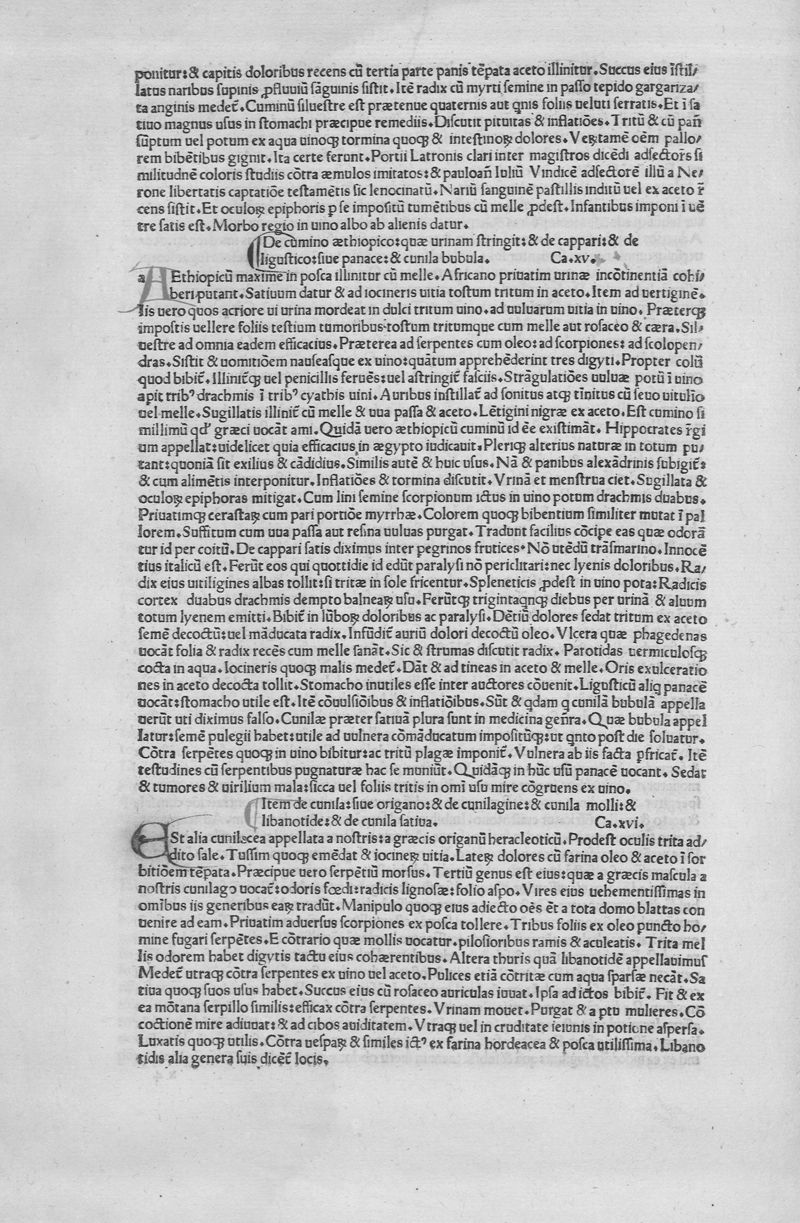 ponitur: & capitis doloribus recens cū tertia parte panis tēpata aceto illinitur. Succus eius īstil/
latus naribus supinis ꝓfluuiū sāguinis sistit. Itē radix cū myrti semine in passo tepido gargariza/
ta anginis medet̄. Cuminū siluestre est prætenue quaternis aut qnis foliis ueluti serratis. Et ī sa
tiuo magnus usus in stomachi præcipue remediis. Discutit pituitas & inflatiōes. Tritū & cū pan̄
sūptum uel potum ex aqua uinoqꝫ tormina quoqꝫ & intestinoꝝ dolores. Veꝝtamē oēm pallo/
rem bibētibus gignit. Ita certe ferunt. Portii Latronis clari inter magistros dicēdi adsector̄s si
militudinē coloris studiis cōtra æmulos imitatos: & pauloan̄ Iuliū Vindicē adsectorē illū a Ne/
rone libertatis captatiōe testamētis sic lenocinatū. Nariū sanguinē pastillis inditū uel ex aceto r̄
cens sistit. Et oculoꝝ epiphoris p se impositū tumētibus cū melle ꝓdest. Infantibus imponi ī uē
tre satis est. Morbo regio in uino albo ab alienis datur.
De cumino æthiopico: quæ urinam stringit: & de cappari: & de
ligustico: siue panace: & cunila bubula. Ca. xv.
a AEthiopicū maxime in posca illinitur cū melle. Africano priuatim urinæ incōtinentiā cohi/
beri putant. Satiuum datur & ad iocineris uitia tostum tritum in aceto. Item ad uertiginē.
Iis uero quos acriore ui urina mordeat in dulci tritum uino. ad uuluarum uitia in uino. Præterqꝫ
impostis uellere foliis testium tumoribus. tostum tritumque cum melle aut rosaceo & cæra. Sil/
uestre ad omnia eadem efficacius. Præterea ad serpentes cum oleo: ad scorpiones: ad scolopen/
dras. Sistit & uomitiōem nauseasque ex uino: quātum apprehēderint tres digyti. Propter colū
quod bibit̄. Illinit̄qꝫ uel penicillis feruēs: uel astringit̄ fasciis. Strāgulatiōes uuluæ potū ī uino
apit tribꝰ drachmis ī tribꝰ cyathis uini. Auribus instillat̄ ad sonitus atqꝫ tīnitus cū seuo uitulīo
uel melle. Sugillatis illinit̄ cū melle & uua passa & aceto. Lētigini nigræ ex aceto. Est cumino si
millimū qd' græci uocāt ami. Quidā uero æthiopicū cuminū id ēe existimāt. Hippocrates r̄gi
um appellat: uidelicet quia efficacius in ægypto iudicauit. Pleriqꝫ alterius naturæ in totum pu/
tant: quoniā sit exilius & cādidius. Similis autē & huic usus. Nā & panibus alexādrinis subigit̄:
& cum alimētis interponitur. Inflatiōes & tormina discutit. Vrinā et menstrua ciet. Sugillata &
oculoꝝ epiphoras mitigat. Cum lini semine scorpionum ictus in uino potum drachmis duabus.
Priuatimqꝫ cerastaꝝ cum pari portiōe myrrhæ. Colorem quoqꝫ bibentium similiter mutat ī pal
lorem. Suffitum cum uua passa aut resina uuluas purgat. Tradunt facilius cōcipe eas quæ odorā
tur id per coitū. De cappari satis diximus inter pegrinos frutices. Nō utēdū trāsmarino. Innocē
tius italicū est. Ferūt eos qui quottidie id edūt paralysi nō periclitari: nec lyenis doloribus. Ra/
dix eius uitiligines albas tollit: si tritæ in sole fricentur. Spleneticis ꝓdest in uino pota: Radicis
cortex duabus drachmis dempto balneaꝝ usu. Ferūtqꝫ trigintaqnqꝫ diebus per urinā & aluum
totum lyenem emitti. Bibit̄ in lūboꝝ doloribus ac paralysi. Dētiū dolores sedat tritum ex aceto
semē decoctū: uel māducata radix. Infūdit̄ auriū dolori decoctū oleo. Vlcera quæ phagedenas
uocāt folia & radix recēs cum melle sanāt. Sic & strumas discutit radix. Parotidas uermiculosqꝫ
cocta in aqua. Iocineris quoqꝫ malis medet̄. Dāt & ad tineas in aceto & melle. Oris exulceratio
nes in aceto decocta tollit. Stomacho inutiles esse inter auctores cōuenit. Ligusticū aliq panacē
uocāt: stomacho utile est. Itē cōuulsiōibus & inflatiōibus. Sūt & qdam q cunilā bubulā appella
uerūt uti diximus falso. Cunilæ præter satiuā plura sunt in medicina gen̄ra. Quæ bubula appel
latur: semē pulegii habet: utile ad uulnera cōmāducatum impositūqꝫ: ut qnto post die soluatur.
Cōtra serpētes quoqꝫ in uino bibitur: ac tritū plagæ imponit̄. Vulnera ab iis facta pfricat̄. Itē
testudines cū serpentibus pugnaturæ hac se muniūt. Quidāqꝫ in hūc usū panacē uocant. Sedat
& tumores & uirilium mala: sicca uel foliis tritis in omī usu mire cōgruens ex uino.
Item de cunila: siue origano: & de cunilagine: & cunila molli: &
libanotide: & de cunila satiua. Ca. xvi.
ESt alia cunilacea appellata a nostris: a græcis origanū heracleoticū. Prodest oculis trita ad/
dito sale. Tussim quoqꝫ emēdat & iocineꝝ uitia. Lateꝝ dolores cū farina oleo & aceto ī sor
bitiōem tēpata. Præcipue uero serpētiū morsus. Tertiū genus est eius: quæ a græcis mascula a
nostris cunilago uocat̄: odoris fœdi: radicis lignosæ: folio aspo. Vires eius uehementissimas in
omībus iis generibus eaꝝ tradūt. Manipulo quoqꝫ eius adiecto oēs ēt a tota domo blattas con
uenire ad eam. Priuatim aduersus scorpiones ex posca tollere. Tribus foliis ex oleo puncto ho/
mine fugari serpētes. E cōtrario quæ mollis uocatur. pilosioribus ramis & aculeatis. Trita mel
lis odorem habet digytis tactu eius cohærentibus. Altera thuris quā libanotidē appellauimus
Medet̄ utraqꝫ cōtra serpentes ex uino uel aceto. Pulices etiā cōtritæ cum aqua sparsæ necāt. Sa
tiua quoqꝫ suos usus habet. Succus eius cū rosaceo auriculas iuuat. Ipsa ad ictos bibit̄. Fit & ex
ea mōtana serpillo similis: efficax cōtra serpentes. Vrinam mouet. Purgat & a ptu mulieres. Cō
coctionē mire adiuuat: & ad cibos auiditatem. Vtraqꝫ uel in cruditate ieiunis in potione aspersa.
Luxatis quoqꝫ utilis. Cōtra uespaꝝ & similes ictꝰ ex farina hordeacea & posca utilissima. Libano
tidis alia genera suis dicēt̄ locis.